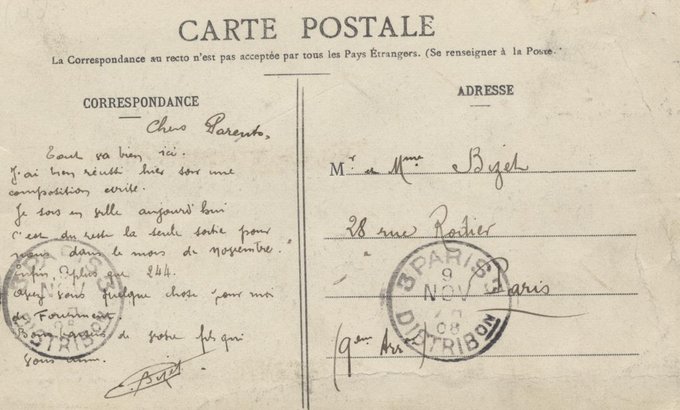 CARTE POSTALE
La Correspondance au recto n'est pas acceptée par tous les Pays Étrangers. (Se renseigner à la Poste.
CORRESPONDANCE
Chers Parents,
Tout va bien ici.
J'ai bien réussi hier soir une
composition écrite.
Je sors en ville aujourd'hui
c'est du reste la seule sortie pour
nous dans le mois de novembre.
Enfin, plus que 244.
Avez vous quelque chose pour moi
de Fourment.
de votre fils qui
vous aime.
Bizet
ADRESSE
Mr et Mme Bizet
28 rue Rodier
Paris
(9em Arr)
3 PARIS 3
9
NOV
08
DISTRIBON
PARIS 3
NOV
DISTRIBON